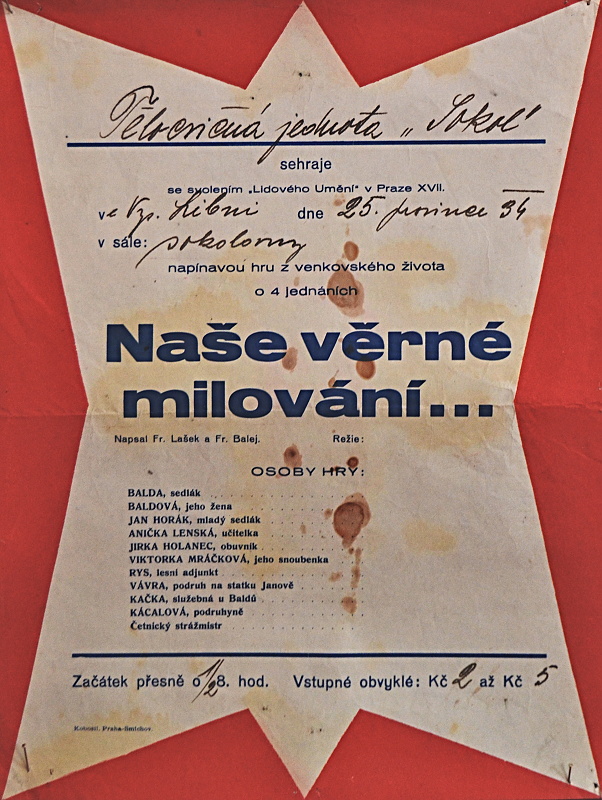 Tělocvičná jednota „Sokol"
sehraje
se svolením „Lidového Umění" v Praze XVII.
ve Vys. Libni dne 25. prosince 34
v sále: sokolovny
napínavou hru z venkovského života
o 4 jednáních
Naše věrné
milování...
Napsal Fr. Lašek a Fr. Balej. Režie:
OSOBY HRY:
BALDA, sedlák
BALDOVÁ, jeho žena
JAN HORÁK, mladý sedlák
ANIČKA LENSKÁ, učitelka
JIRKA HOLANEC, obuvník
VIKTORKA MRÁČKOVÁ, jeho snoubenka
RYS, lesní adjunkt
VÁVRA, podruh na statku Janově
KAČKA, služebná u Baldů
KÁCALOVÁ, podruhyně
Četnický strážmistr
Začátek přesně o 1/2 8. hod. Vstupné obvyklé: Kč 2 až Kč 5
Praha-Smíchov.